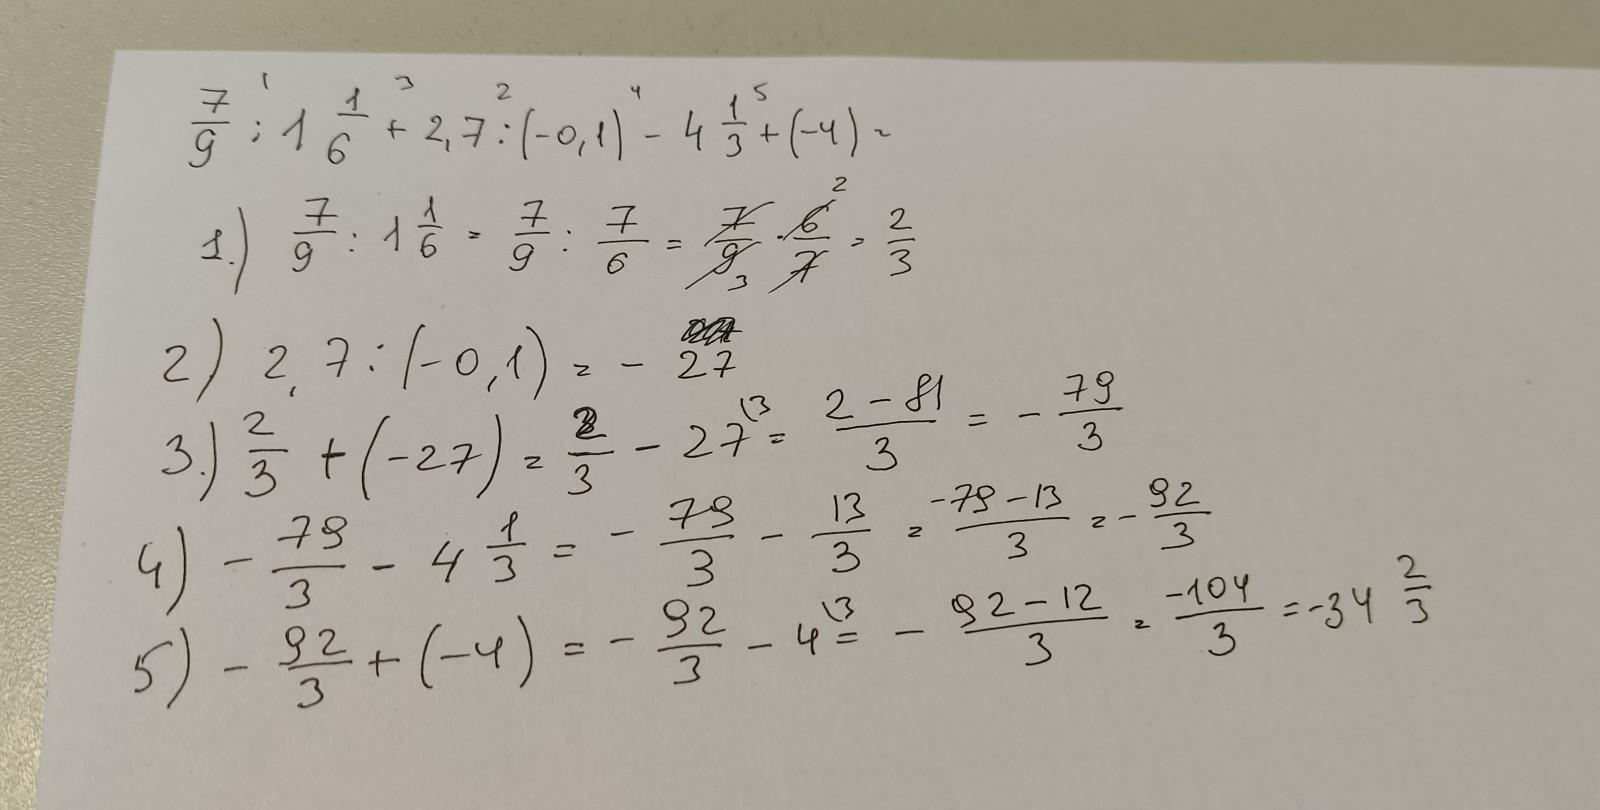 7/9 : 1 1/6 + 2,7 : (-0,1) - 4 1/3 + (-4) =
1.) 7/9 : 1 1/6 = 7/9 : 7/6 = 7/9 · 6/7 = 2/3
2) 2,7 : (-0,1) = - 27
3.) 2/3 + (-27) = 2/3 - 27 = (2 - 81)/3 = - 79/3
4) - 79/3 - 4 1/3 = - 79/3 - 13/3 = (-79 - 13)/3 = - 92/3
5) - 92/3 + (-4) = - 92/3 - 4 = - (92 - 12)/3 = -104/3 = -34 2/3